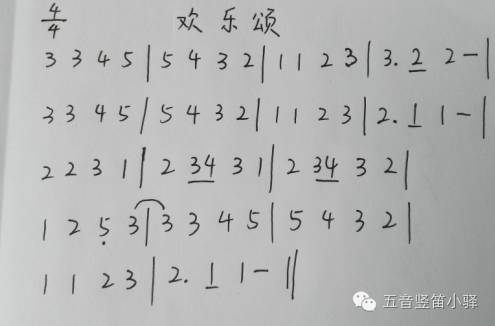 4/4 欢乐颂
3 3 4 5 | 5 4 3 2 | 1 1 2 3 | 3. 2 2 - |
3 3 4 5 | 5 4 3 2 | 1 1 2 3 | 2. 1 1 - |
2 2 3 1 | 2 34 3 1 | 2 34 3 2 |
1 2 5 3 | 3 3 4 5 | 5 4 3 2 |
1 1 2 3 | 2. 1 1 - ||
五音竖笛小驿